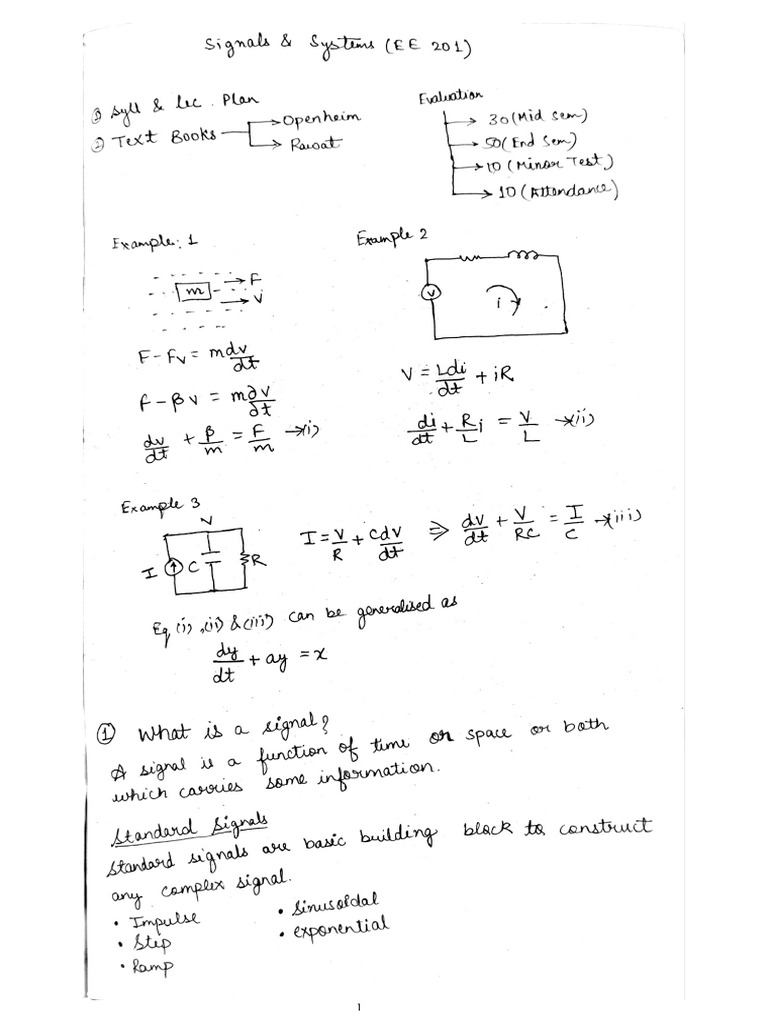 Signals & Systems (EE 201)
① Syll & Lec. Plan
② Text Books → Openheim
→ Rawat
Evaluation
→ 30 (Mid Sem)
→ 50 (End Sem)
→ 10 (Minor Test)
→ 10 (Attendance)
Example: 1
m → F
→ V
F - Fv = m dv/dt
F - βv = m ∂v/∂t
dv/dt + β/m = F/m → (i)
Example 2
V
i
V = L di/dt + iR
di/dt + R/L i = V/L → (ii)
Example 3
V
I C R
I = V/R + C dV/dt ⇒ dv/dt + V/RC = I/C → (iii)
Eq (i), (ii) & (iii) can be generalised as
dy/dt + ay = x
① What is a signal?
A signal is a function of time or space or both
which carries some information.
Standard Signals
Standard signals are basic building block to construct
any complex signal.
• Impulse
• Step
• Ramp
• Sinusoidal
• exponential
1